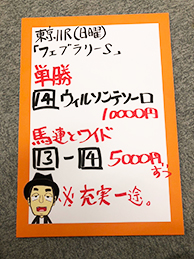 東京11R(日曜)
「フェブラリーS」
単勝
14 ウィルソンテソーロ
10000円
馬連とワイド
13-14 5000円ずつ
※充実一途。